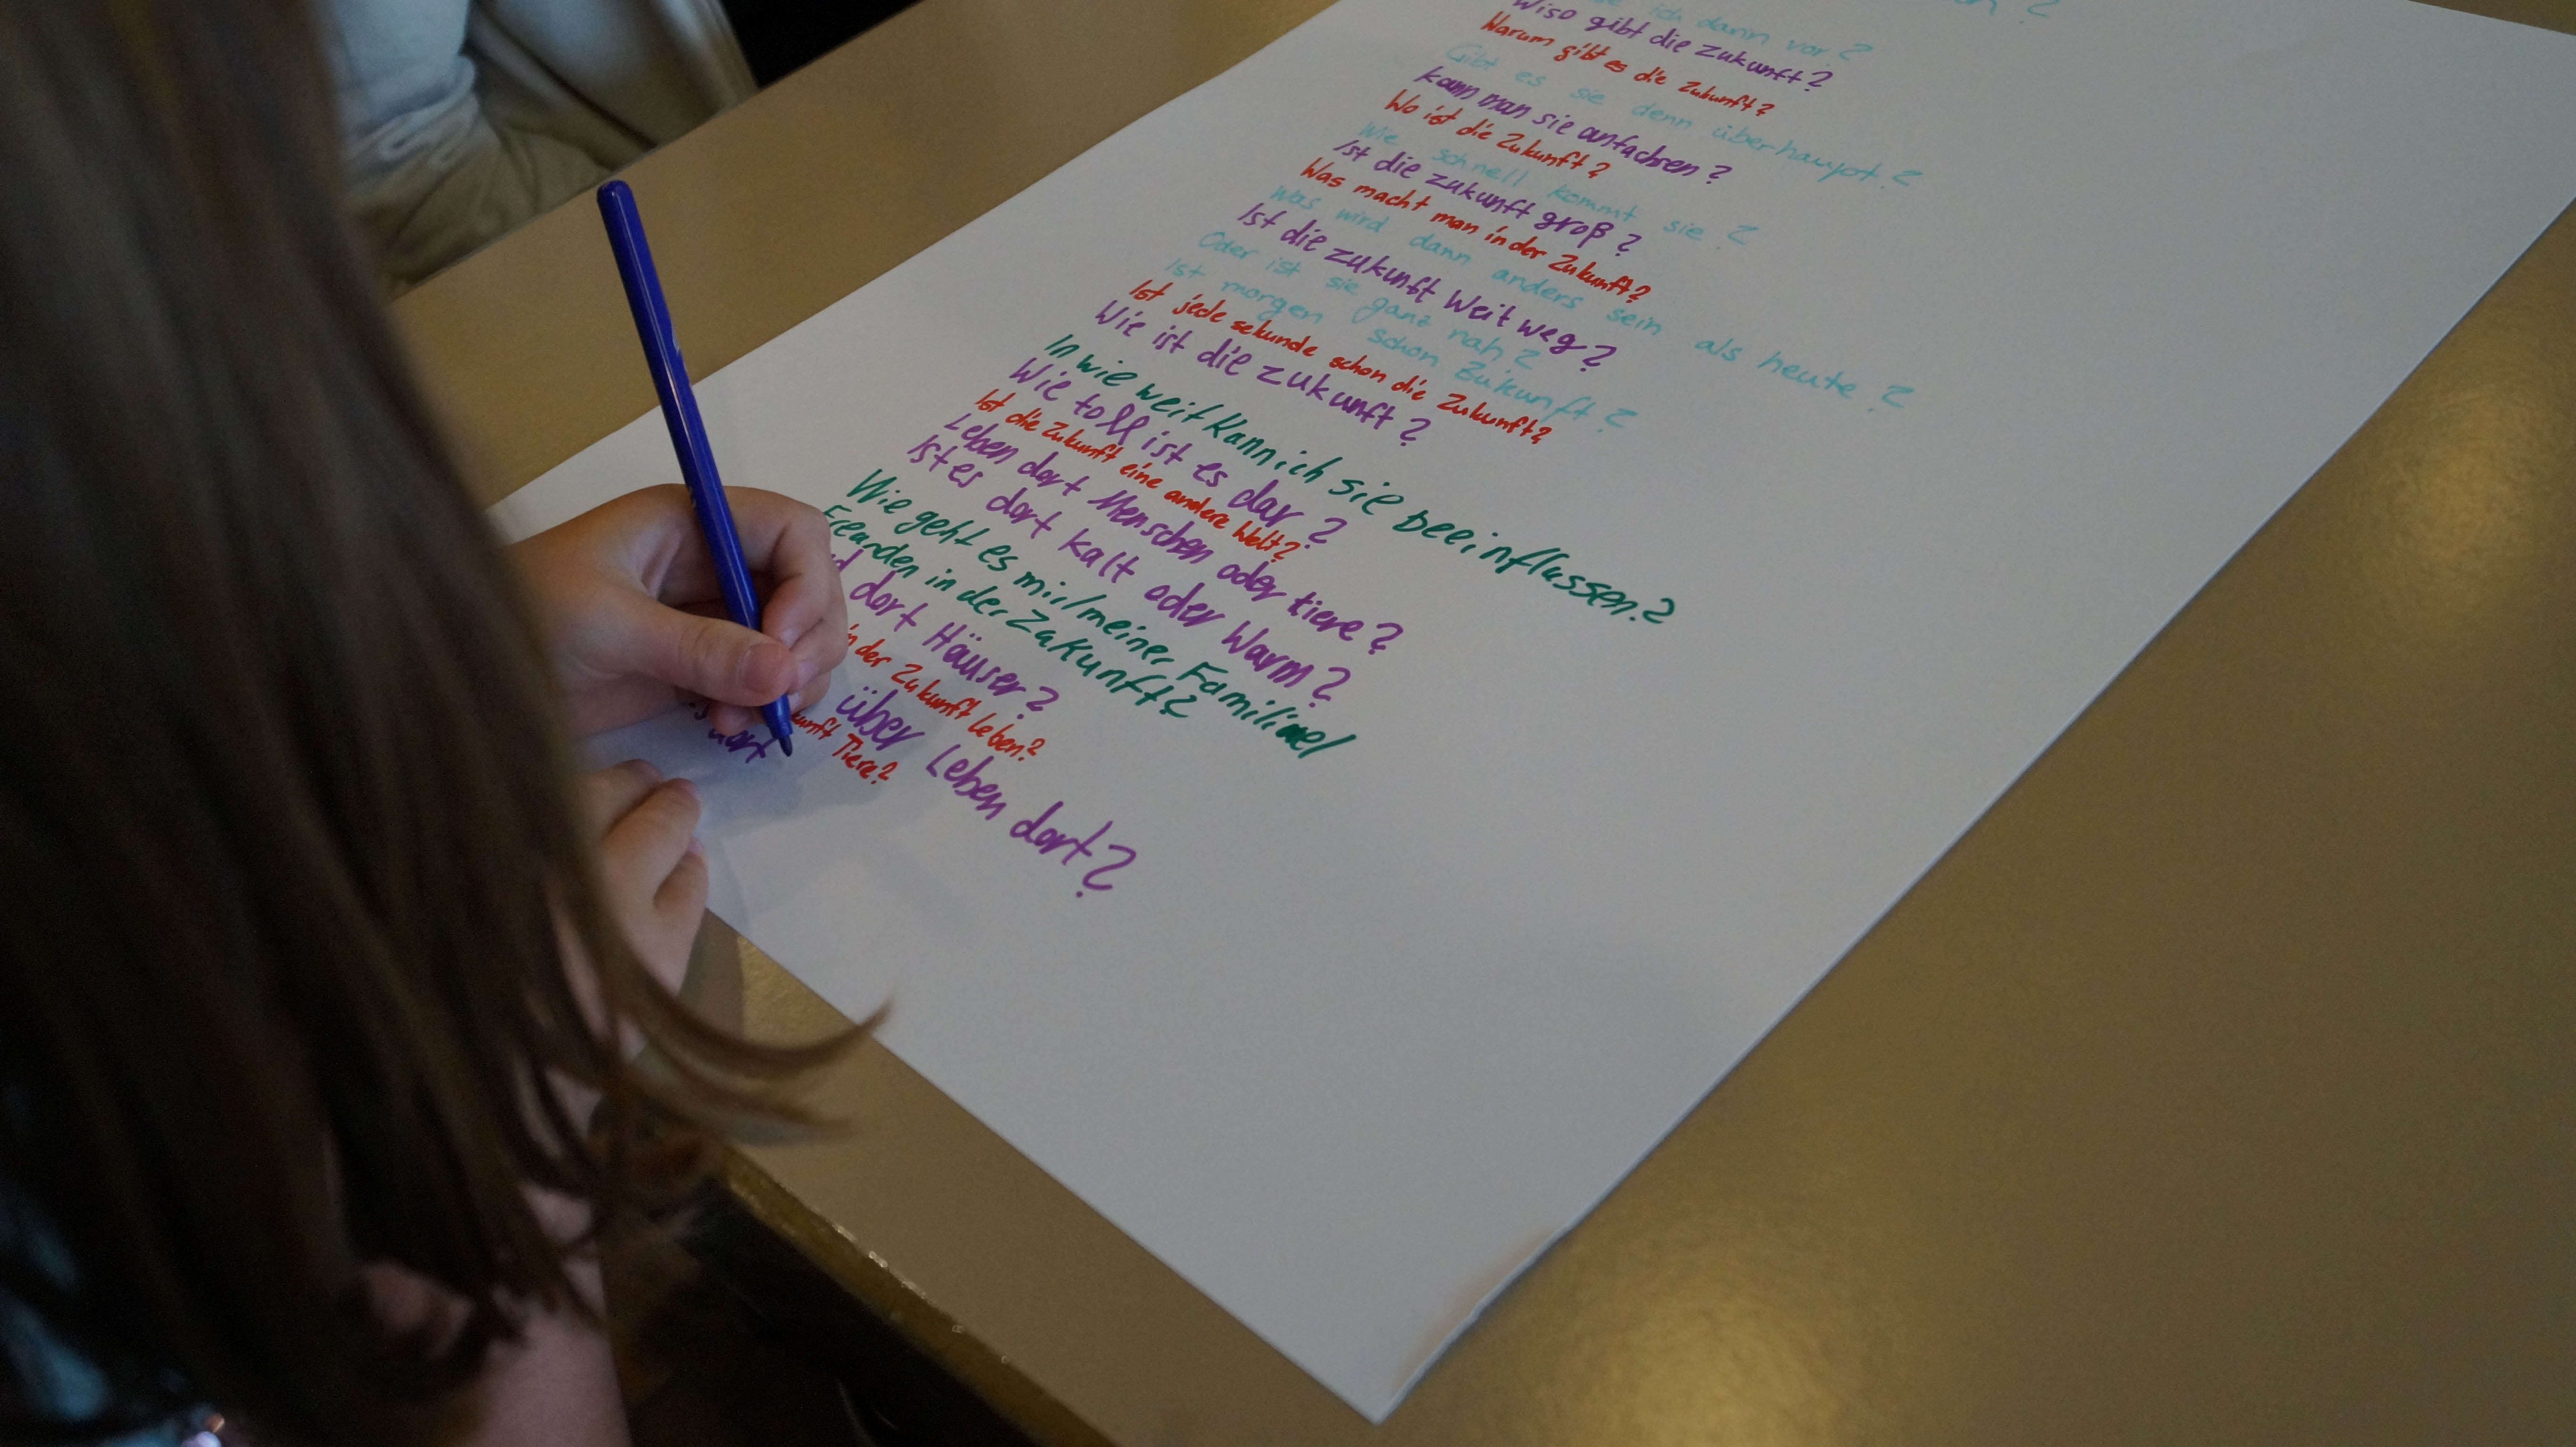 ich dann vor?
Wiso gibt die zukunft?
Warum gibt es die Zukunft?
Gibt es sie denn überhaupt?
kann man sie anfachsen?
Wo ist die Zukunft?
Wie schnell kommt sie?
Ist die zukunft groß?
Was macht man in der Zukunft?
Was wird dann anders sein als heute?
Ist die zukunft Weit weg?
Oder ist sie ganz nah?
Ist morgen schon Zukunft?
Ist jede sekunde schon die Zukunft?
Wie ist die zukunft?
In wie weit kann ich sie beeinflussen?
Wie toll ist es dar?
Ist die Zukunft eine andere Welt?
Leben dort Menschen oder tiere?
Ist es dort kalt oder Warm?
Wie geht es mir/meiner Familie/
Freunden in der Zukunft?
dort Häuser?
in der Zukunft leben?
über Leben dort?
Tiere?
dort